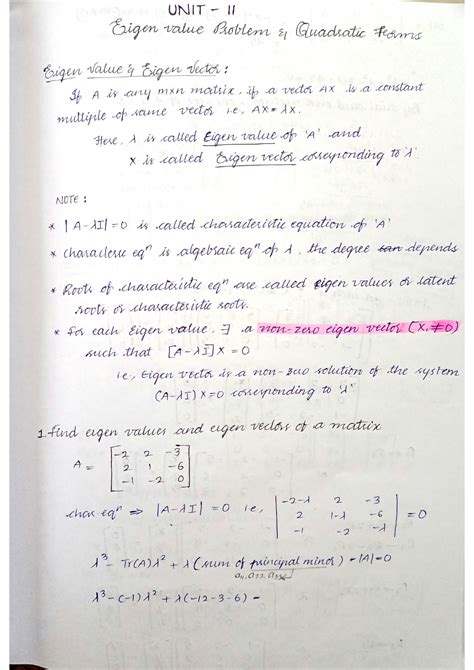 UNIT - II
Eigen value Problem & Quadratic Forms
Eigen Value & Eigen Vector :
If A is any mxn matrix, if a vector AX is a constant
multiple of same vector i.e, AX = λX.
Here, λ is called Eigen value of 'A' and
X is called Eigen vector corresponding to λ
NOTE :
* |A-λI| = 0 is called characteristic equation of 'A'
* characteristic eqⁿ is algebraic eqⁿ of λ, the degree depends
* Roots of characteristic eqⁿ are called eigen values or latent
roots or characteristic roots.
* for each Eigen value, ∃ a non-zero eigen vector (X≠0)
such that [A-λI]X = 0
i.e, Eigen vector is a non-zero solution of the system
(A-λI)X=0 corresponding to 'λ'
1. find eigen values and eigen vectors of a matrix
A = [-2 2 -3
2 1 -6
-1 -2 0]
char eqⁿ ⇒ |A-λI| = 0 i.e, |-2-λ 2 -3
2 1-λ -6
-1 -2 -λ| = 0
λ³ - Tr(A)λ² + λ(sum of principal minor) - |A| = 0
a₁₁, a₂₂, a₃₃
λ³ - (-1)λ² + λ(-12-3-6) -